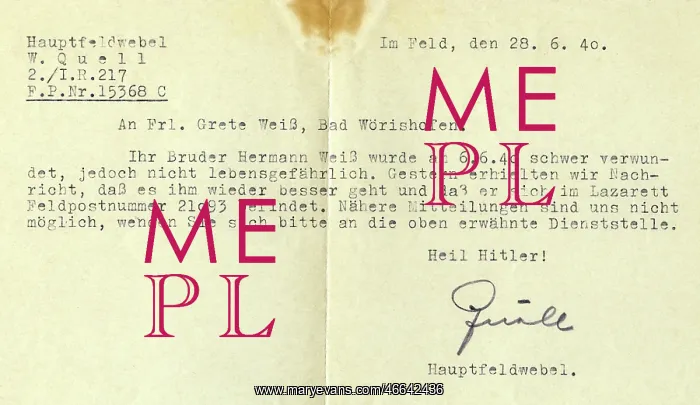 Hauptfeldwebel
W. Q u e l l
2./I.R.217
F.P.Nr.15368 C
Im Feld, den 28. 6. 4o.
An Frl. Grete Weiß, Bad Wörishofen.
Ihr Bruder Hermann Weiß wurde am 6.6.4o schwer verwun-
det, jedoch nicht lebensgefährlich. Gestern erhielten wir Nach-
richt, daß es ihm wieder besser geht und daß er sich im Lazarett
Feldpostnummer 21o93 befindet. Nähere Mitteilungen sind uns nicht
möglich, wenden Sie sich bitte an die oben erwähnte Dienststelle.
Heil Hitler!
Quell
Hauptfeldwebel.
ME
PL
ME
PL
www.maryevans.com/46642436